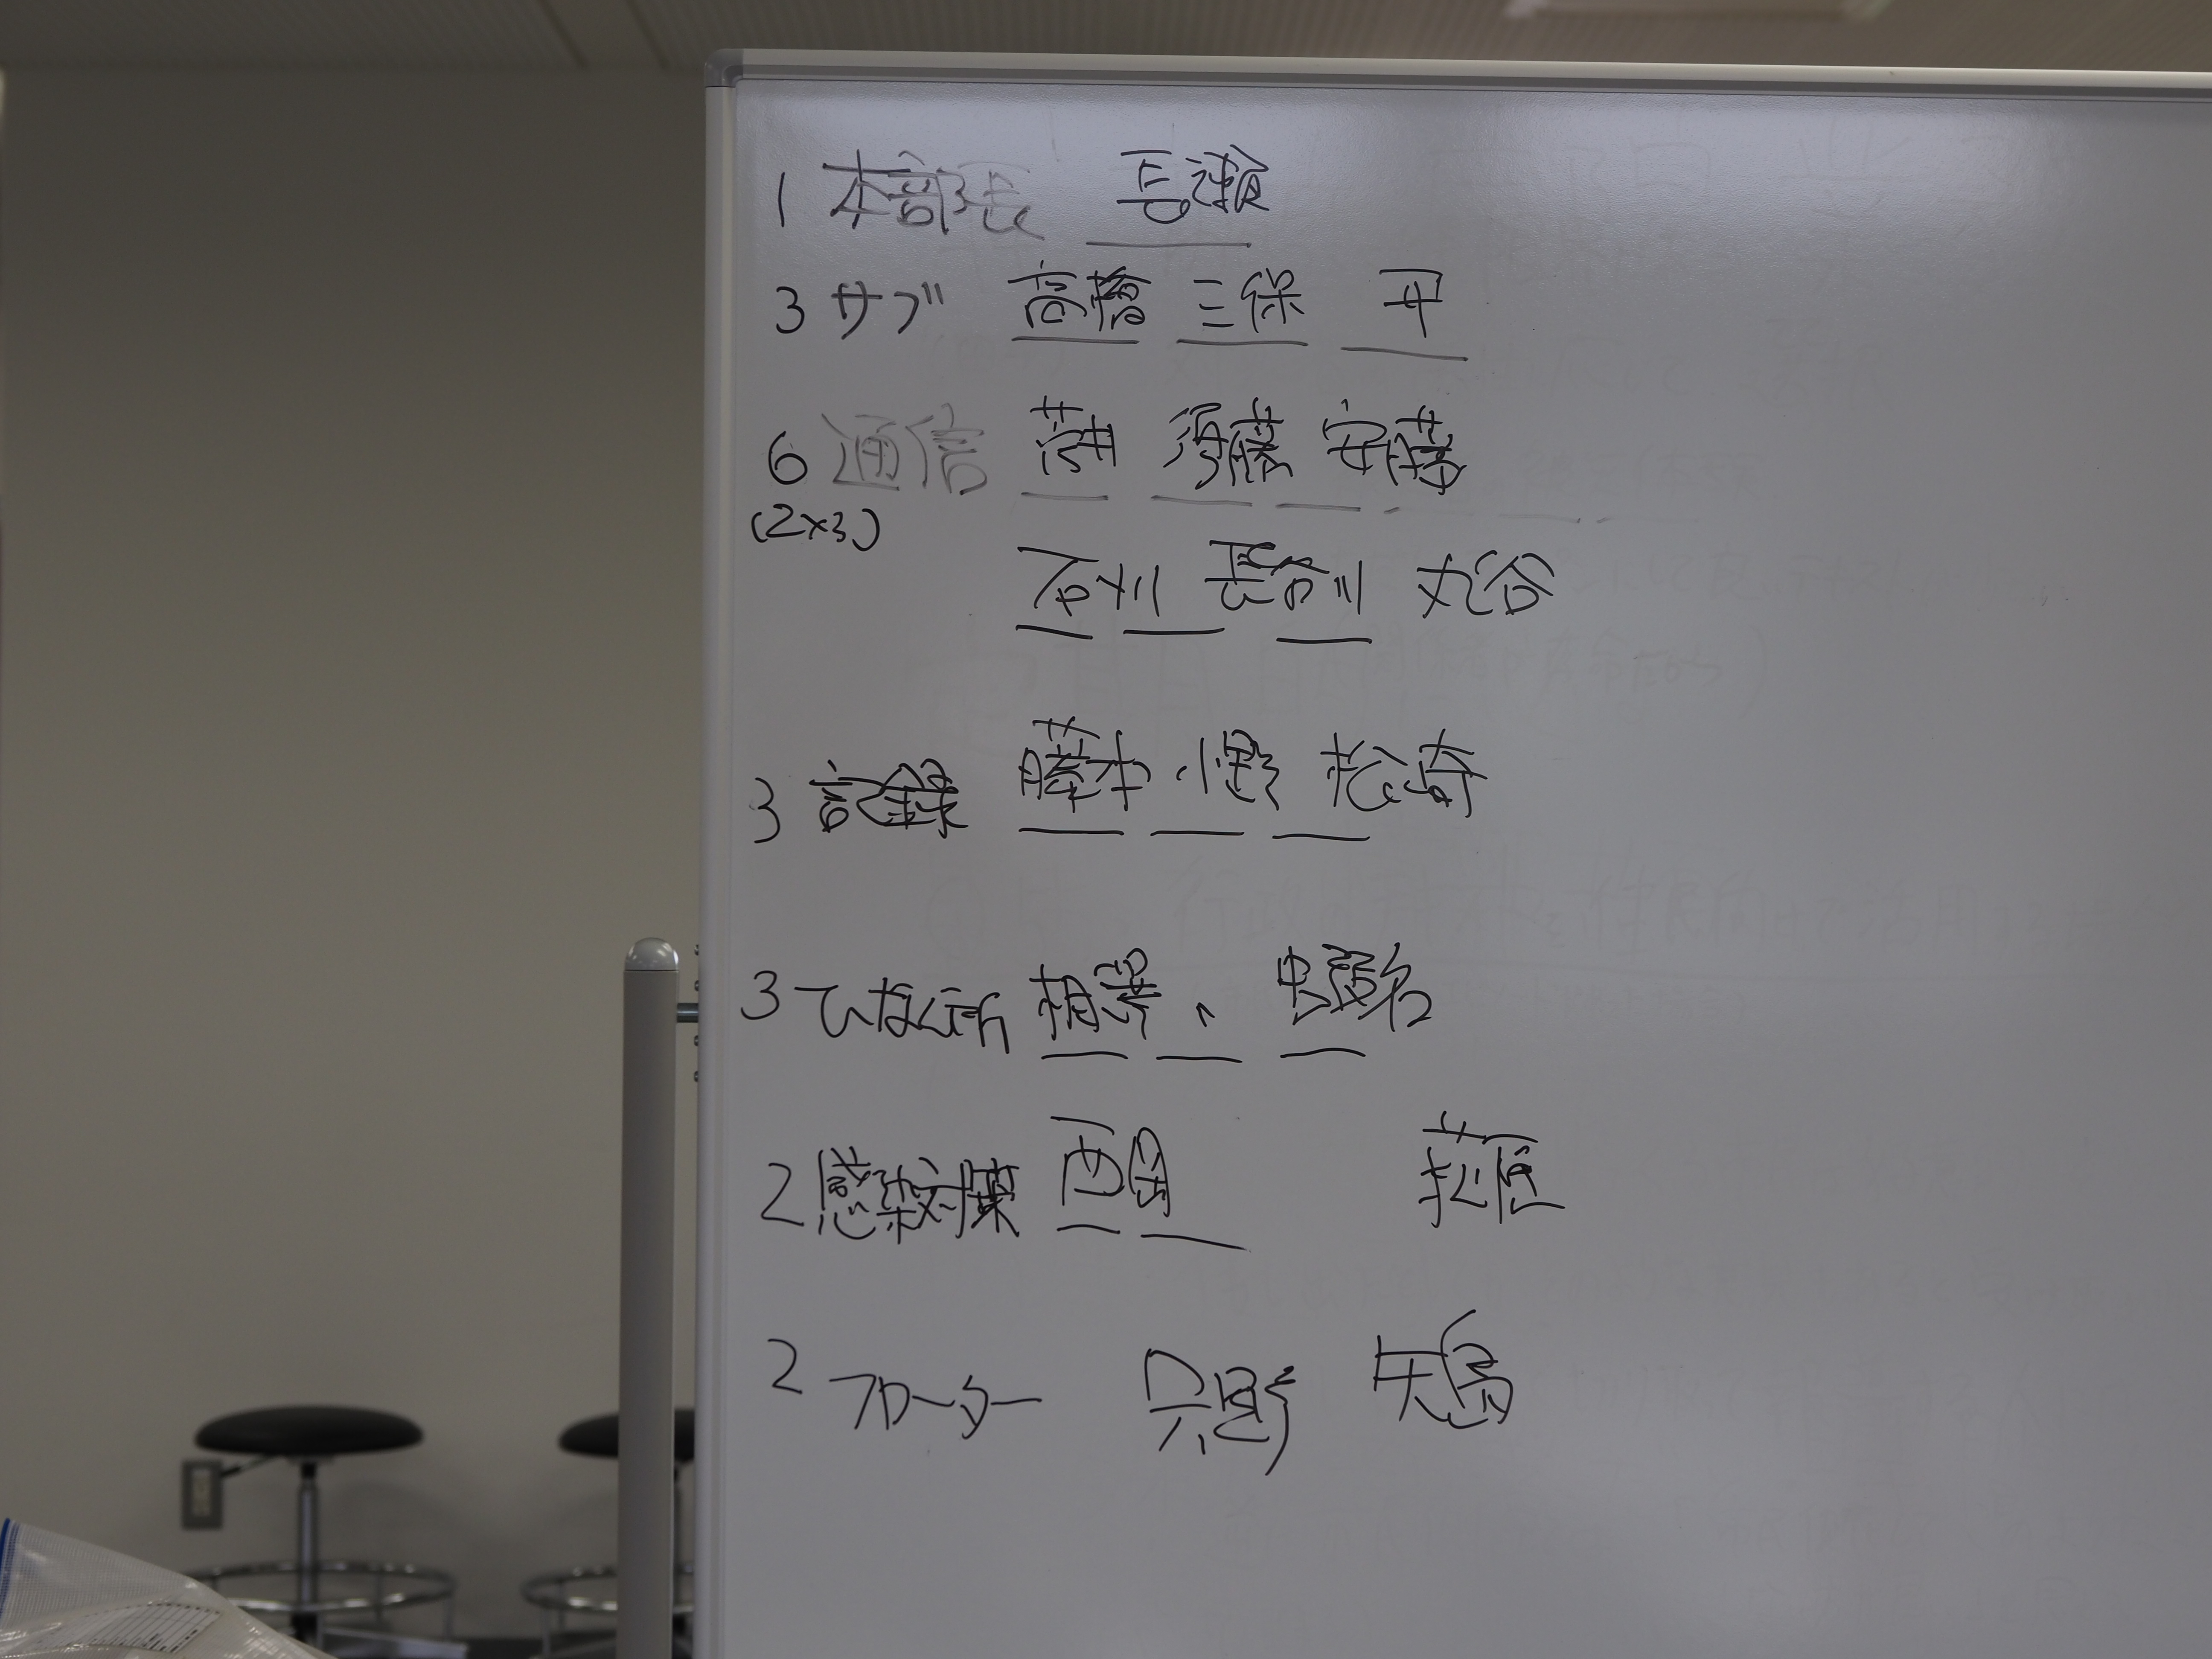 1 本部長 長瀬
3 サブ 高橋 三保 平
6 通信 須藤 安藤
(2×3)
石川 長谷川 丸谷
3 記録 藤本 小野 松崎
3 相澤、海老名
2 感染対策 西岡
2 フローター 只野 矢島